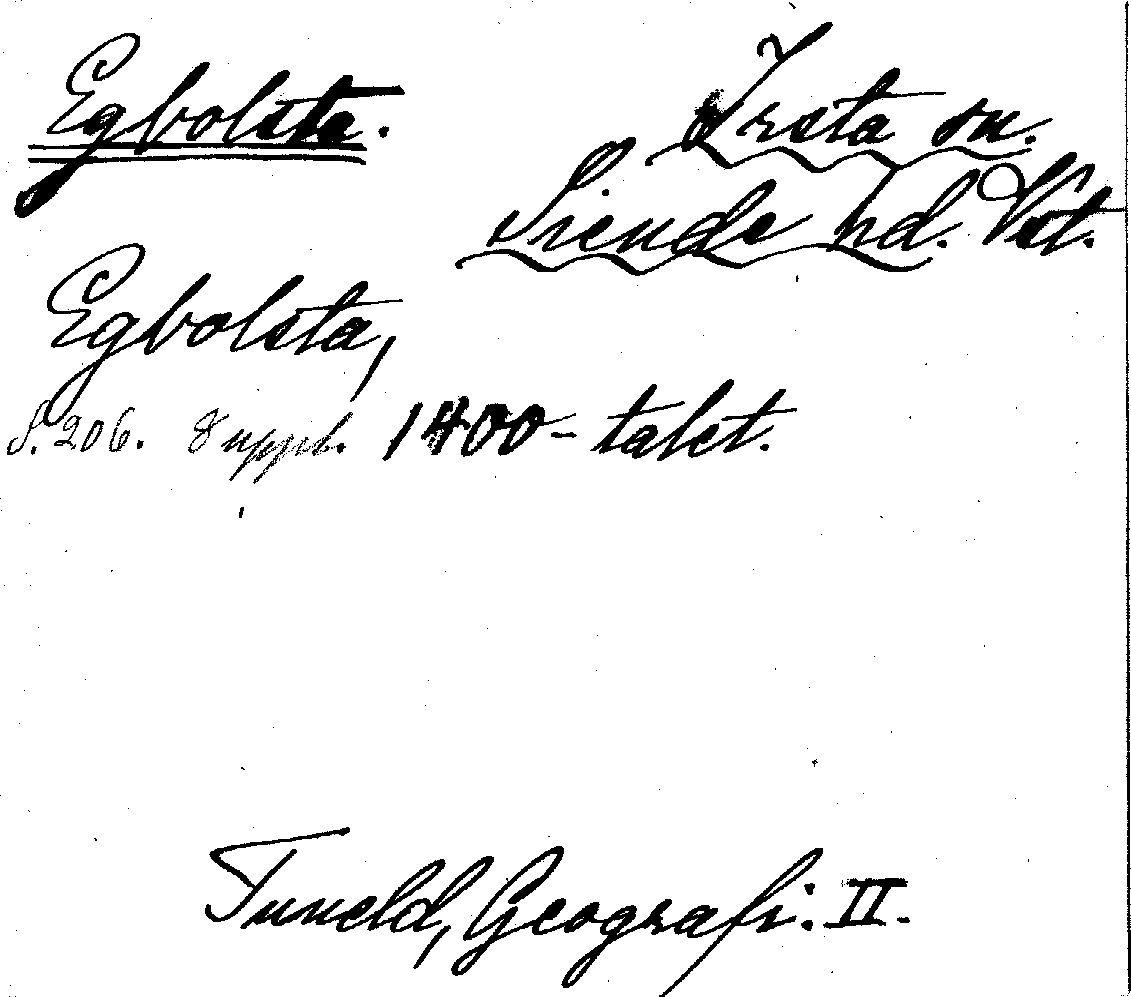 Egbolsta.
Irsta sn.
Siende hd. Vst.
Egbolsta,
S. 206. 8 uppl. 1400-talet.
Tuneld, Geografi: II.